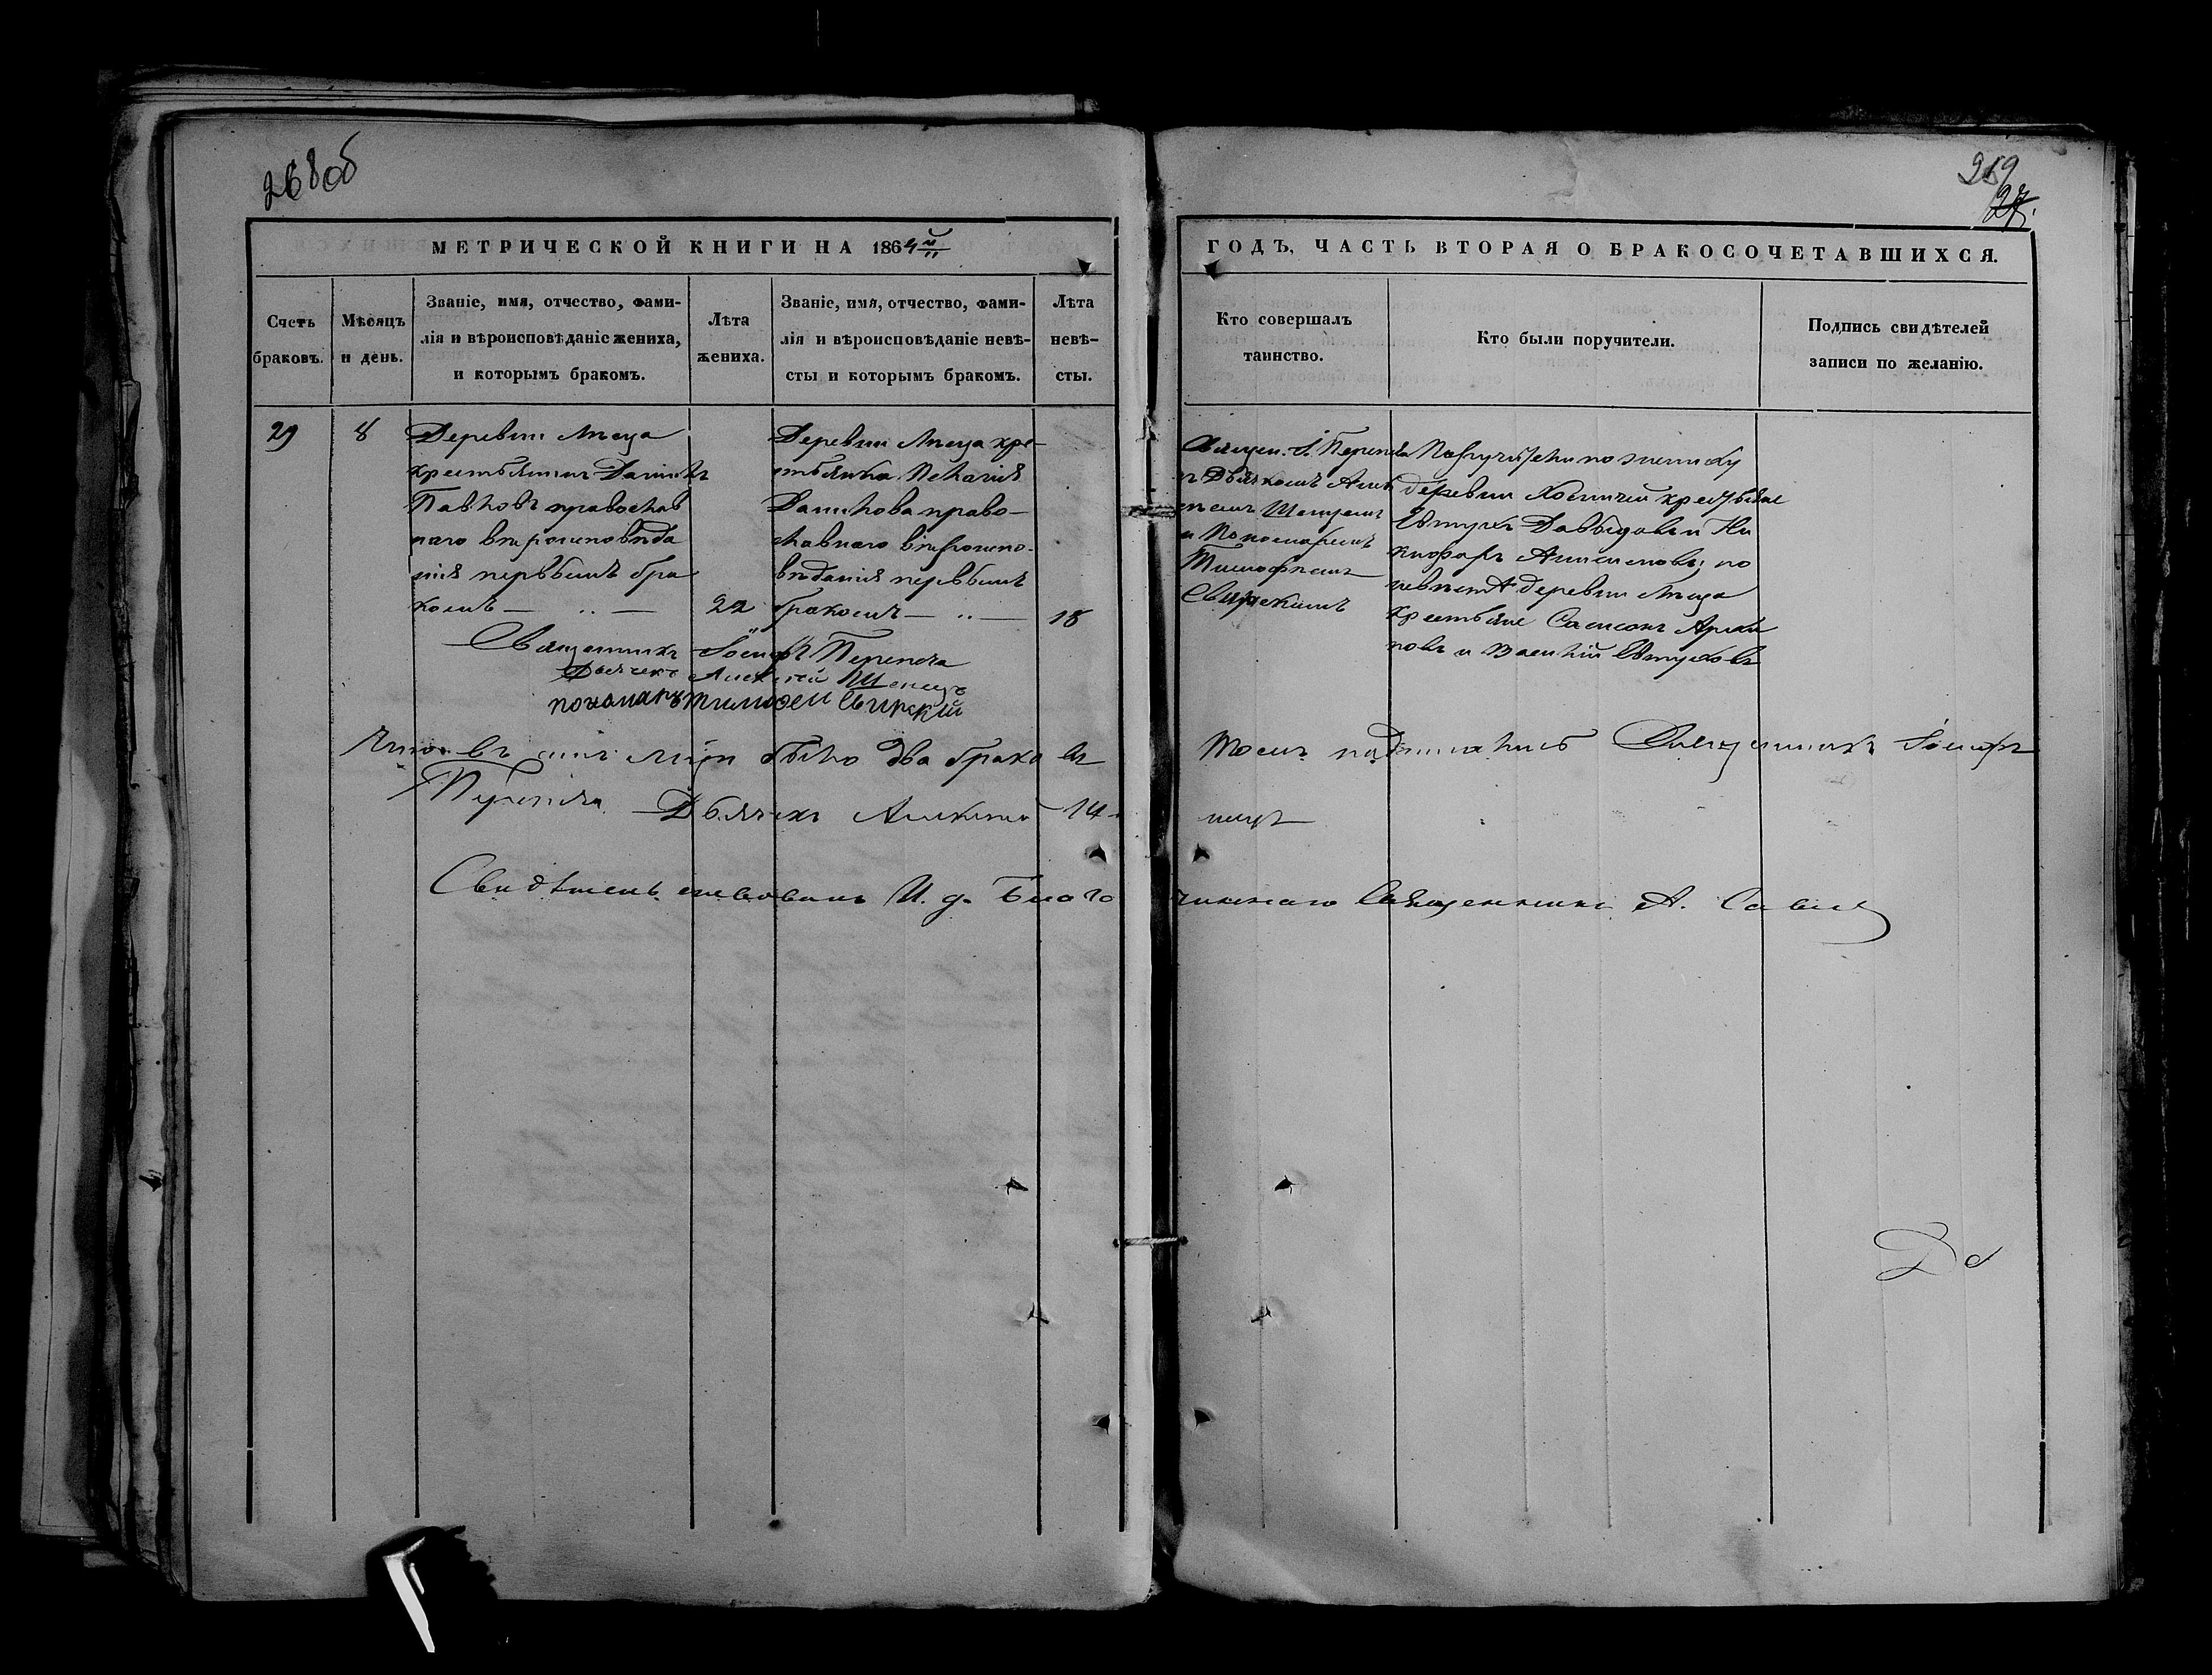 268об
269
27.
МЕТРИЧЕСКОЙ КНИГИ НА 1864й
ГОДЪ, ЧАСТЬ ВТОРАЯ О БРАКОСОЧЕТАВШИХСЯ.
Счетъ
браковъ.
Мѣсяцъ
и день.
Званіе, имя, отчество, фами-
лія и вѣроисповѣданіе жениха,
и которымъ бракомъ.
Лѣта
жениха.
Званіе, имя, отчество, фами-
лія и вѣроисповѣданіе невѣ-
сты и которымъ бракомъ.
Лѣта
невѣ-
сты.
Кто совершалъ
таинство.
Кто были поручители.
Подпись свидѣтелей
записи по желанію.
29
8
Деревни
крестьянинъ Данилъ
Павловъ православ
наго вѣроисповѣда
нія первымъ бра
комъ
22
Деревни кре-
стьянка Пелагія
Данилова право-
славнаго вѣроиспо-
вѣданія первымъ
бракомъ
18
Священ. І. Перепеча
съ Дьячкомъ Алек
сѣемъ
и Пономаремъ
Тимофѣемъ
Свирскимъ
Поручители по жениху
деревни крестьяне
Евтухъ Давыдовъ и Ни
кифоръ по
невѣстѣ деревни
крестьяне Самсонъ Архи
повъ и Василій Евтуховъ
Священникъ Іосифъ Перепеча
Дьячекъ Алексѣй
пономаръ тимофей Свирскій
Что въ было два брака въ
томъ подписались Священникъ Іосифъ
Перепеча Дьячекъ Алексѣй
Свидѣтельствовалъ И. д. Благо
чиннаго Священникъ А.